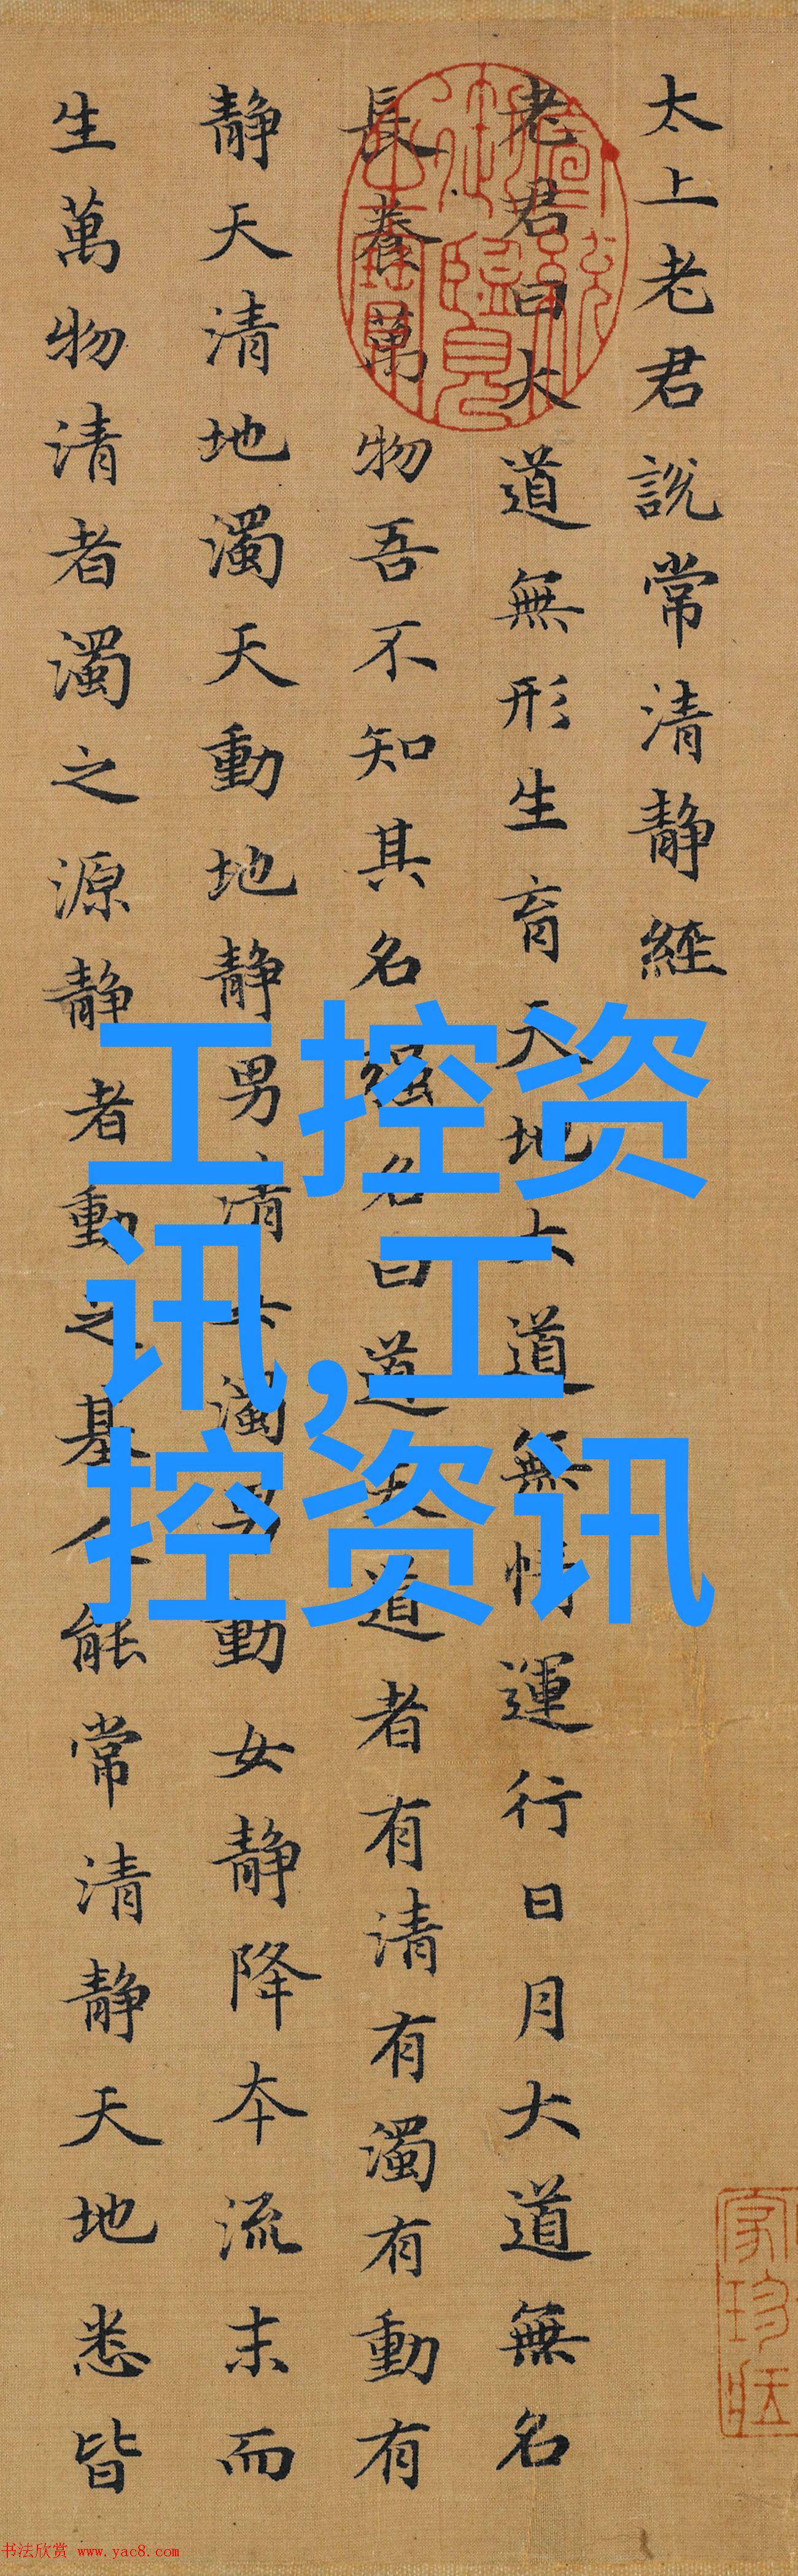 太上老君說常清靜經
老君曰大道無形生育天地大道無情運行日月大道無名
長養萬物吾不知其名強名曰道夫道者有清有濁有動有
靜天清地濁天動地靜男清女濁男動女靜降本流末而
生萬物清者濁之源靜者動之基人能常清靜天地悉皆
工控资
讯,工
控资讯
書法欣赏 www.yac8.com